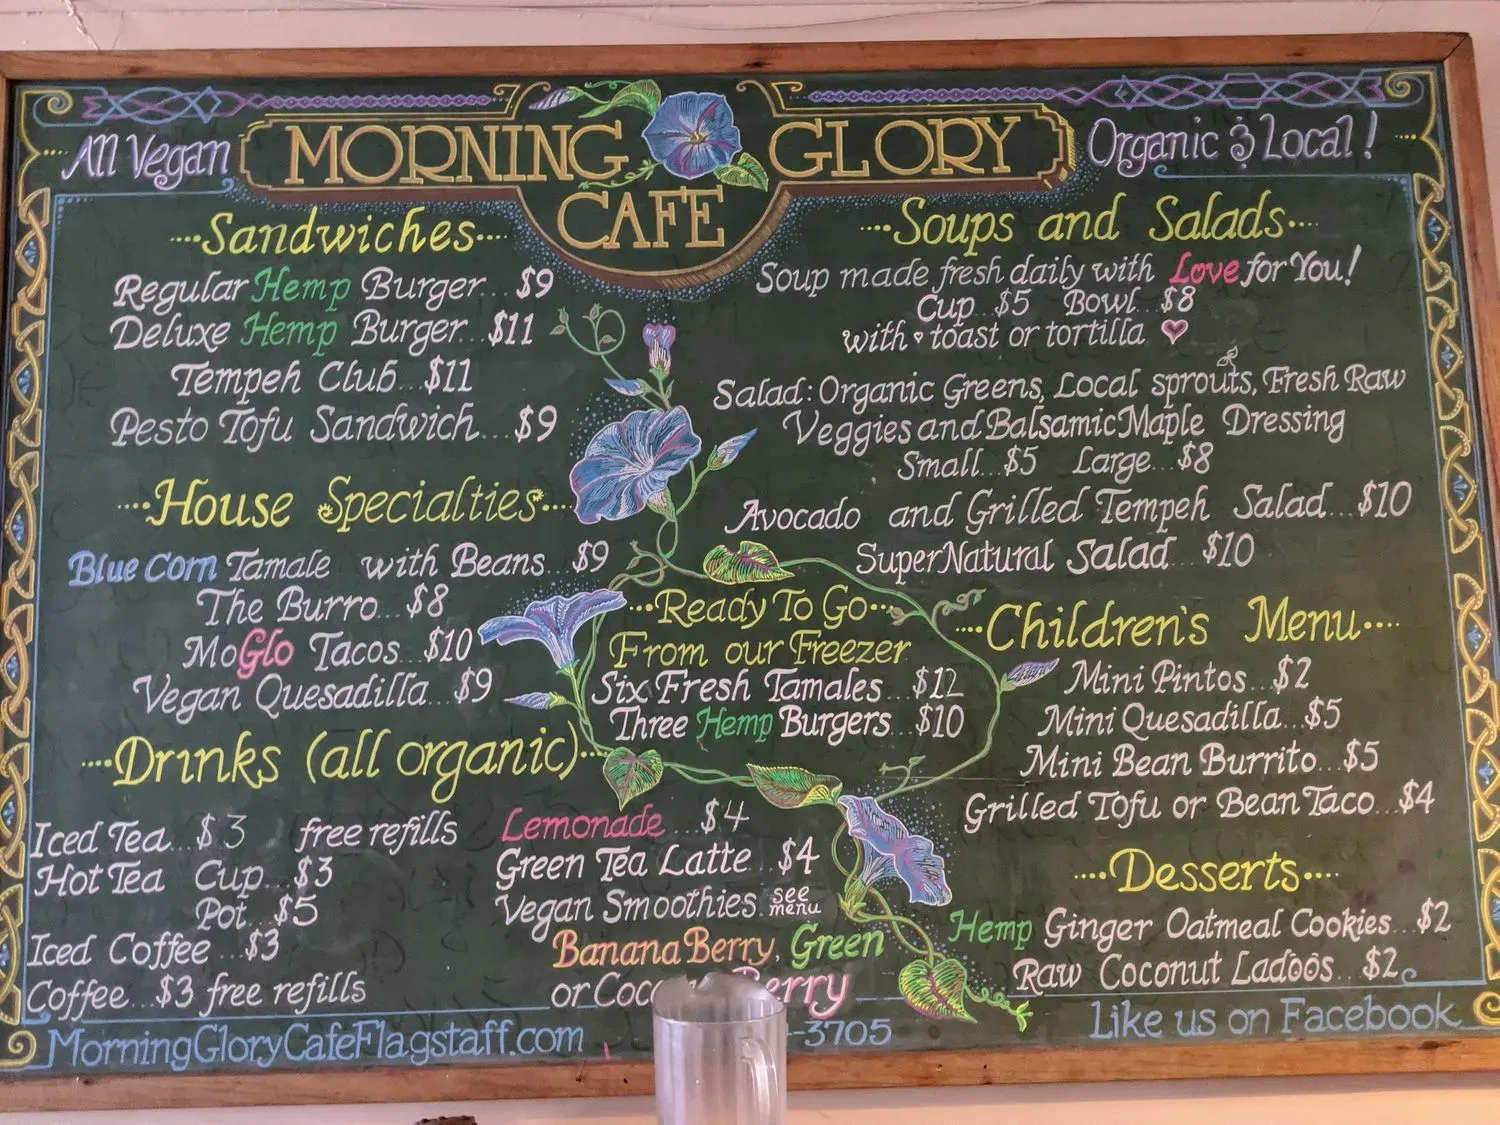 All Vegan
MORNING GLORY
CAFE
Organic & Local!
Sandwiches
Regular Hemp Burger...$9
Deluxe Hemp Burger...$11
Tempeh Club...$11
Pesto Tofu Sandwich...$9
House Specialties
Blue Corn Tamale with Beans...$9
The Burro...$8
MoGlo Tacos...$10
Vegan Quesadilla...$9
Drinks (all organic)
Iced Tea...$3 free refills
Hot Tea Cup...$3
Pot...$5
Iced Coffee...$3
Coffee...$3 free refills
Lemonade...$4
Green Tea Latte...$4
Vegan Smoothies...see menu
Banana Berry, Green
or
Ready To Go
From our Freezer
Six Fresh Tamales...$12
Three Hemp Burgers...$10
Soups and Salads
Soup made fresh daily with Love for You!
Cup...$5 Bowl...$8
with toast or tortilla
Salad: Organic Greens, Local sprouts, Fresh Raw
Veggies and Balsamic Maple Dressing
Small...$5 Large...$8
Avocado and Grilled Tempeh Salad...$10
SuperNatural Salad...$10
Children's Menu
Mini Pintos...$2
Mini Quesadilla...$5
Mini Bean Burrito...$5
Grilled Tofu or Bean Taco...$4
Desserts
Hemp Ginger Oatmeal Cookies...$2
Raw Coconut Ladoos...$2
MorningGloryCafeFlagstaff.com
-3705
Like us on Facebook